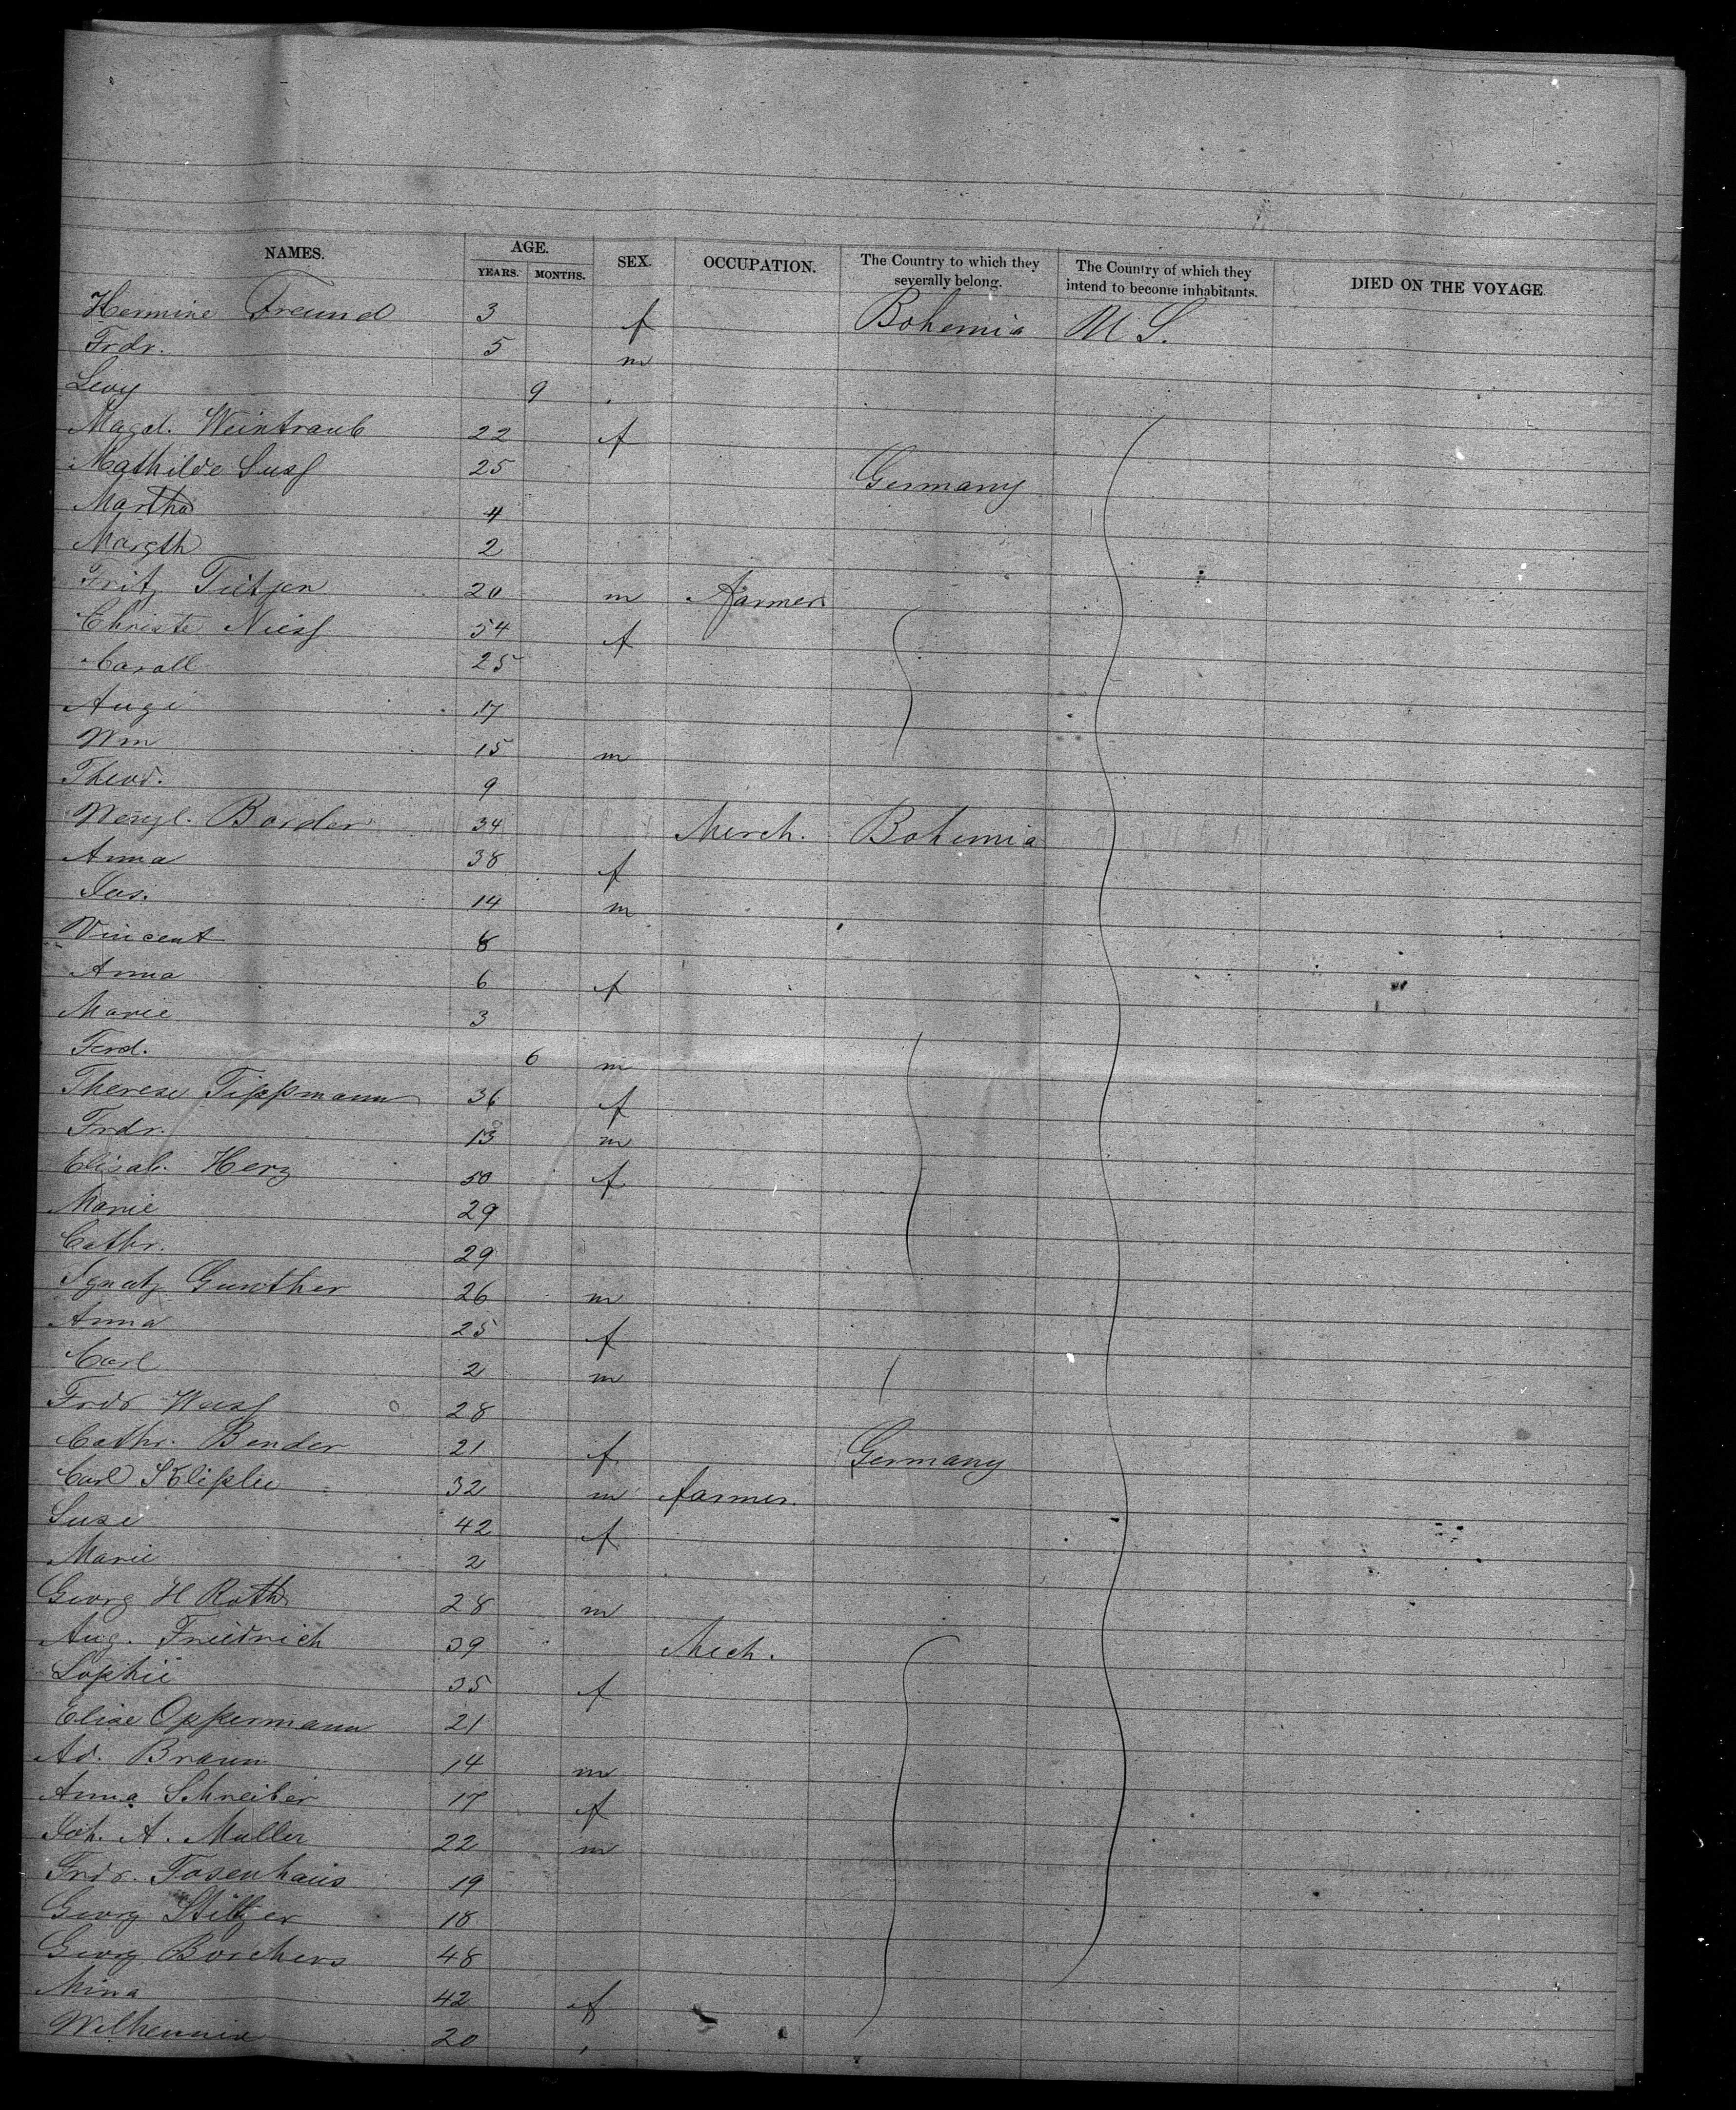 NAMES. AGE. YEARS. MONTHS. SEX. OCCUPATION. The Country to which they severally belong. The Country of which they intend to become inhabitants. DIED ON THE VOYAGE.
Hermine Freund 3 f Bohemia U S.
Frdr. 5 m
Levy 9
Magd. Weintraub 22 f
Mathilde Susſ 25 Germany
Martha 4
Margth 2
Fritz Tietjen 20 m farmer
Christe Niesſ 54 f
Caroll 25
Augé 17
Wm 15 m
Theod. 9
Wenzl. Border 34 Merch. Bohemia
Anna 38 f
Jos. 14 m
Vincent 8
Anna 6 f
Marie 3
Ferd. 6 m
Therese Tippmann 36 f
Frdr. 13 m
Elisab. Herz 50 f
Marie 29
Cathr. 29
Ignatz Gunther 26 m
Anna 25 f
Carl 2 m
Frdr 28
Cathr. Bender 21 f Germany
Carl 32 m farmer.
Suse 42 f
Marie 2
Georg H Roth 28 m
Aug. Friedrich 39 Mech.
Sophie 35 f
Elise Oppermann 21
Ad. Braun 14 m
Anna Schreiber 17 f
Joh. A. Muller 22 m
Frdr. Fosenhaus 19
Georg Stiltzer 18
Georg Borchers 48
Mina 42 f
Wilhemine 20